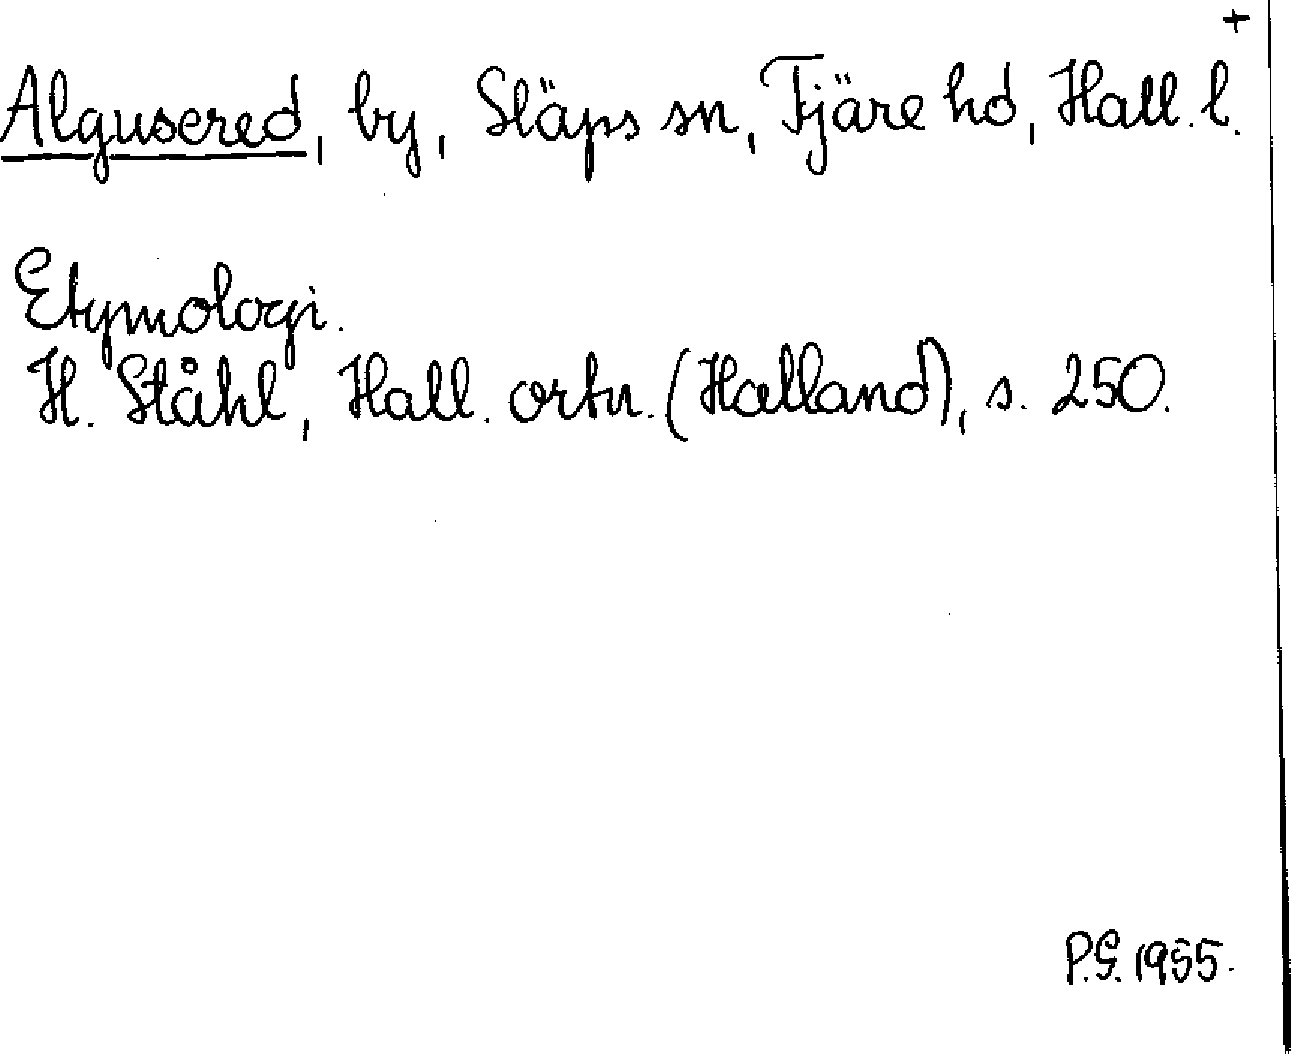 +
Algusered, by, Släps sn, Fjäre hd, Hall. l.
Etymologi.
H. Ståhl, Hall. ortn. (Halland), s. 250.
P.G. 1955.